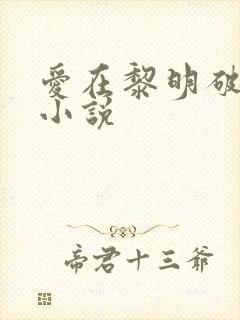 愛在黎明破
小說
帝君十三爺